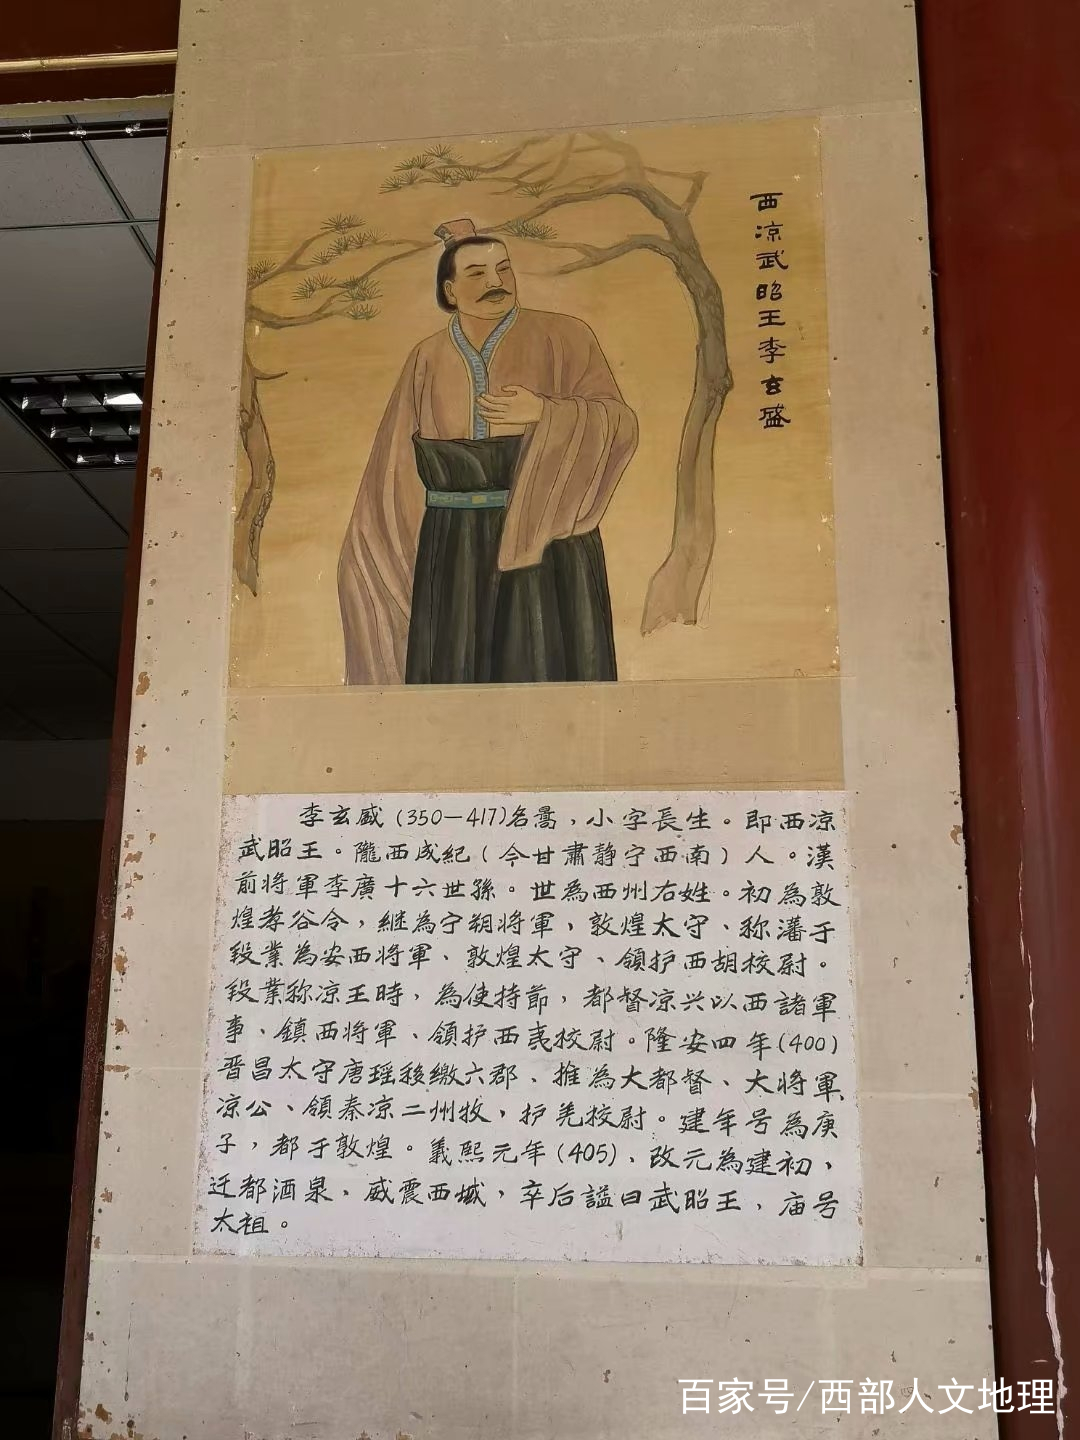 西凉武昭王李玄盛
李玄威(350—417)名暠,小字長生。即西凉
武昭王。隴西成紀(今甘肅静宁西南)人。漢
前将軍李廣十六世孫。世為西州右姓。初為敦
煌孝谷令,継為宁朔将軍,敦煌太守、称藩于
段業為安西将軍、敦煌太守、領护西胡校尉。
段業称凉王時,為使持節,都督凉兴以西諸軍
事、鎮西将軍、領护西夷校尉。隆安四年(400)
晋昌太守唐瑶移缴六郡、推為大都督、大将軍
凉公、領秦凉二州牧,护羌校尉。建年号為庚
子,都于敦煌。義熙元年(405)、改元為建初,
迁都酒泉、威震西域,卒后謚曰武昭王、庙号
太祖。
百家号/西部人文地理